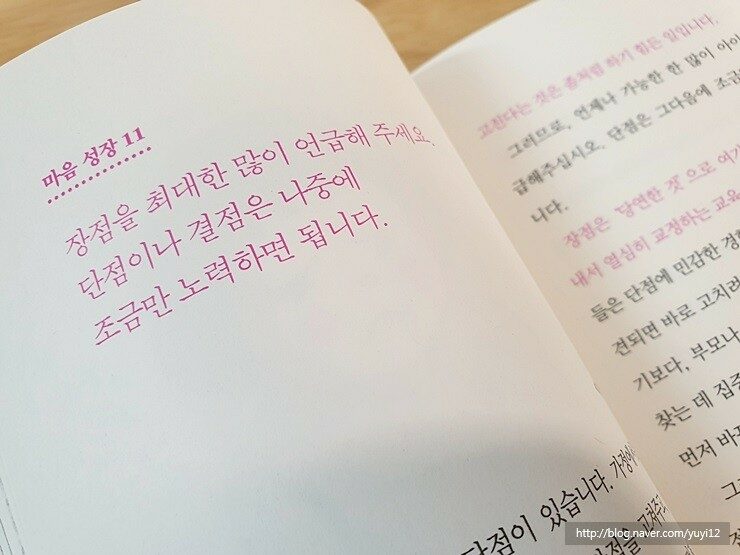 마음 성장 11
장점을 최대한 많이 언급해 주세요.
단점이나 결점은 나중에
조금만 노력하면 됩니다.
단점이 있습니다. 가정에
고쳐주
고친다는 것은 좀처럼 하기 힘든 일입니다.
그러므로, 언제나 가능한 한 많이 아이
급해주십시오. 단점은 그다음에 조금
니다.
장점은 '당연한 것'으로 여기
내서 열심히 교정하는 교육
들은 단점에 민감한 경
견되면 바로 고치려
기보다, 부모나
찾는 데 집중
먼저 바
http://blog.naver.com/yuyi12